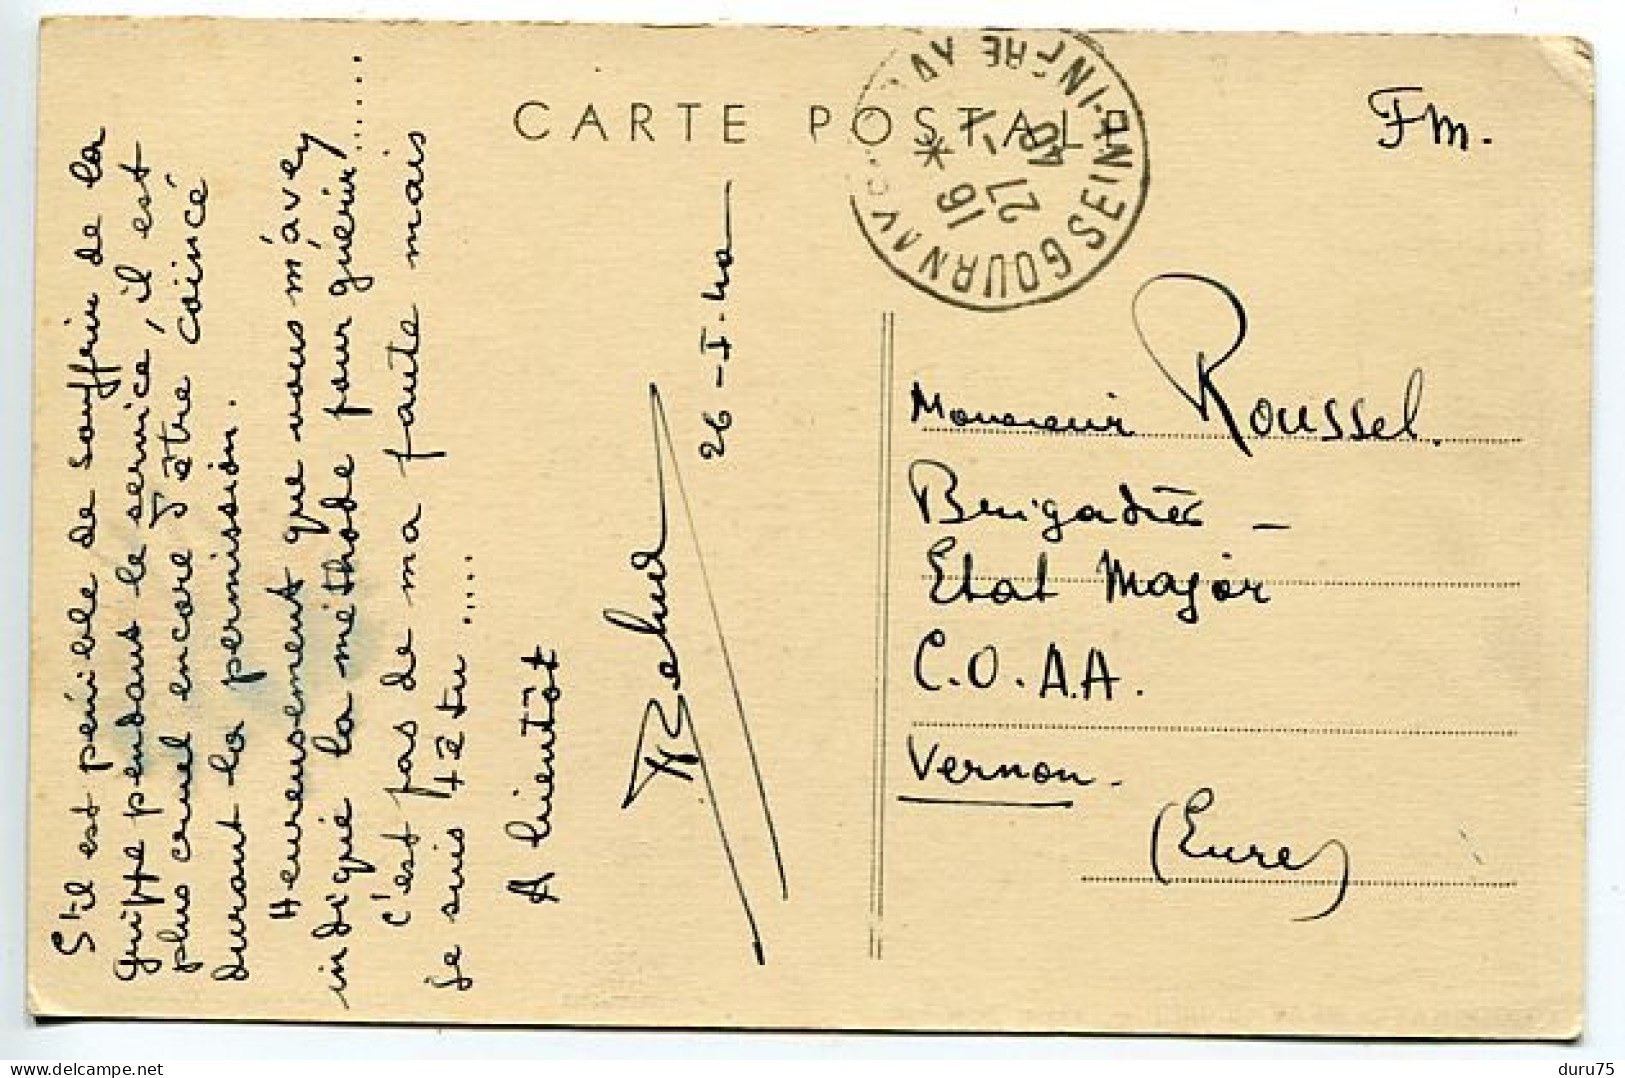 CARTE POSTALE
FM.
16 *
27 - 1
40
GOURNAY SEINE INFRE
S'il est pénible de souffrir de la
Grippe pendant le service, il est
plus cruel encore d'être coincé
durant la permission.
Heureusement que vous m'avez
indiqué la méthode pour guérir......
c'est pas de ma faute mais
je suis têtu .....
A bientôt
26 - I. 40
Monsieur Roussel.
Brigadier -
Etat Major
C.O.A.A.
Vernon.
(Eure)
duru75